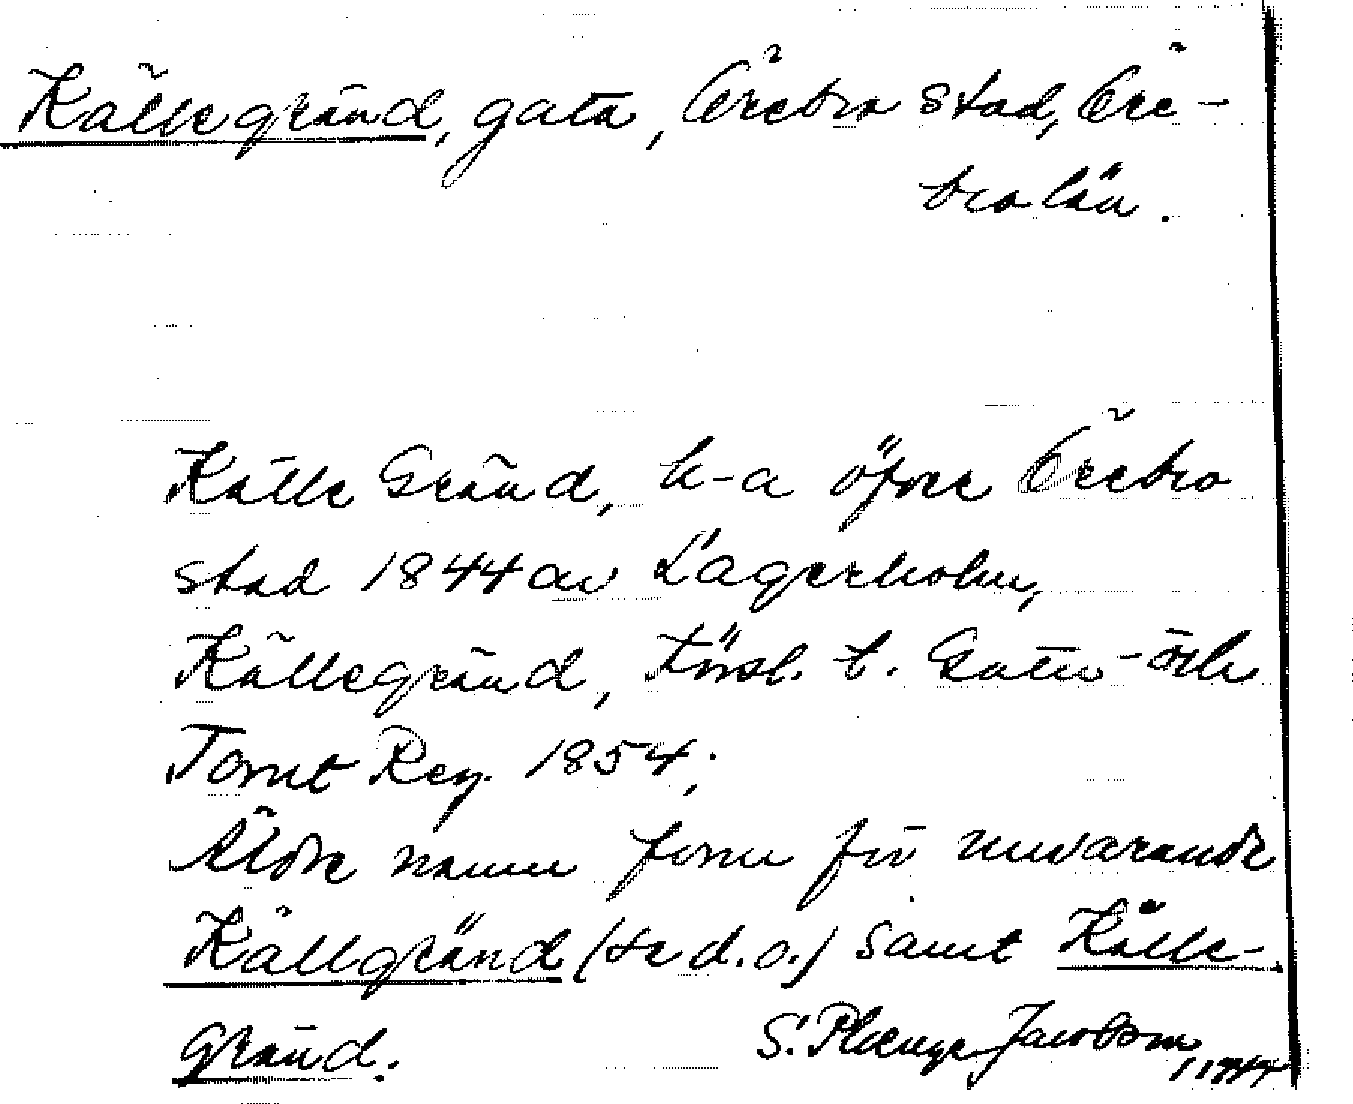 Källegränd, gata, Örebro stad, Öre-
bro län.
Källe Gränd, k-a öfver Örebro
stad 1844 av Lagerholm,
Källegränd, Försl. t. Gatu- och
Tomt Reg. 1854;
Äldre namn form för nuvarande
Källgränd (se d.o.) samt Källe-
Gränd. S. Plænge Jacobson, 1944